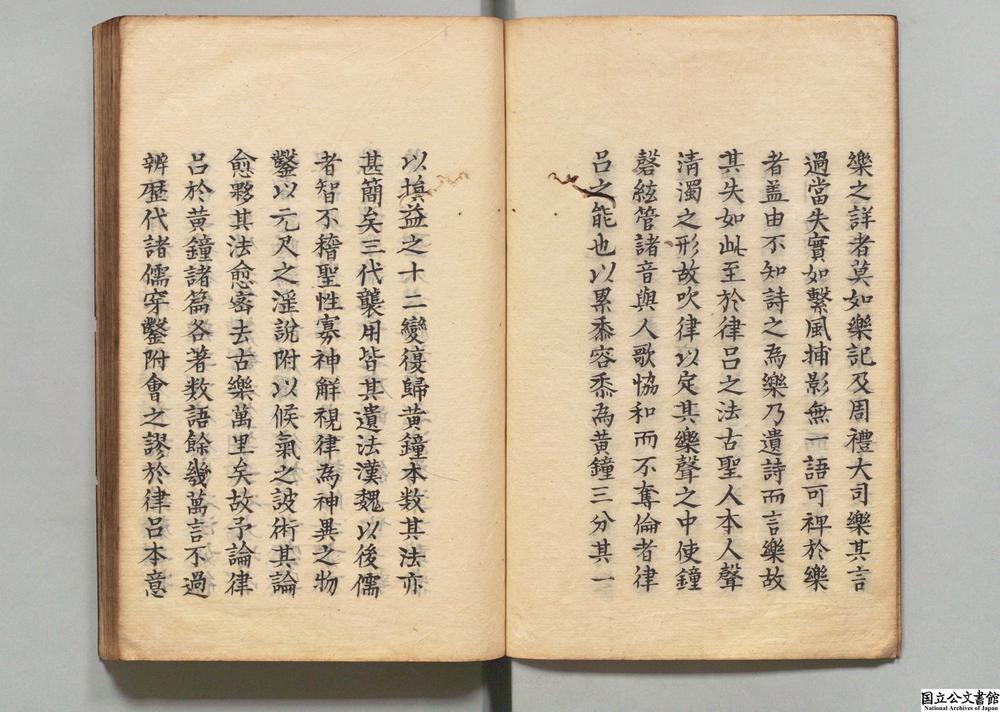 樂之詳者莫如樂記及周禮大司樂其言
過當失實如繫風捕影無一語可裨於樂
者盖由不知詩之為樂乃遺詩而言樂故
其失如此至於律吕之法古聖人本人聲
清濁之形故吹律以定其樂聲之中使鐘
磬絃管諸音與人歌恊和而不奪倫者律
吕之能也以累黍容黍為黄鐘三分其一
以損益之十二變復歸黄鐘本数其法亦
甚簡矣三代襲用皆其遺法漢魏以後儒
者智不稽聖性寡神解視律為神異之物
鑿以元尺之滛說附以候氣之詖術其論
愈夥其法愈密去古樂萬里矣故予論律
吕於黄鐘諸篇各著数語餘幾萬言不過
辨歷代諸儒穿鑿附會之謬於律吕本意
国立公文書館
National Archives of Japan